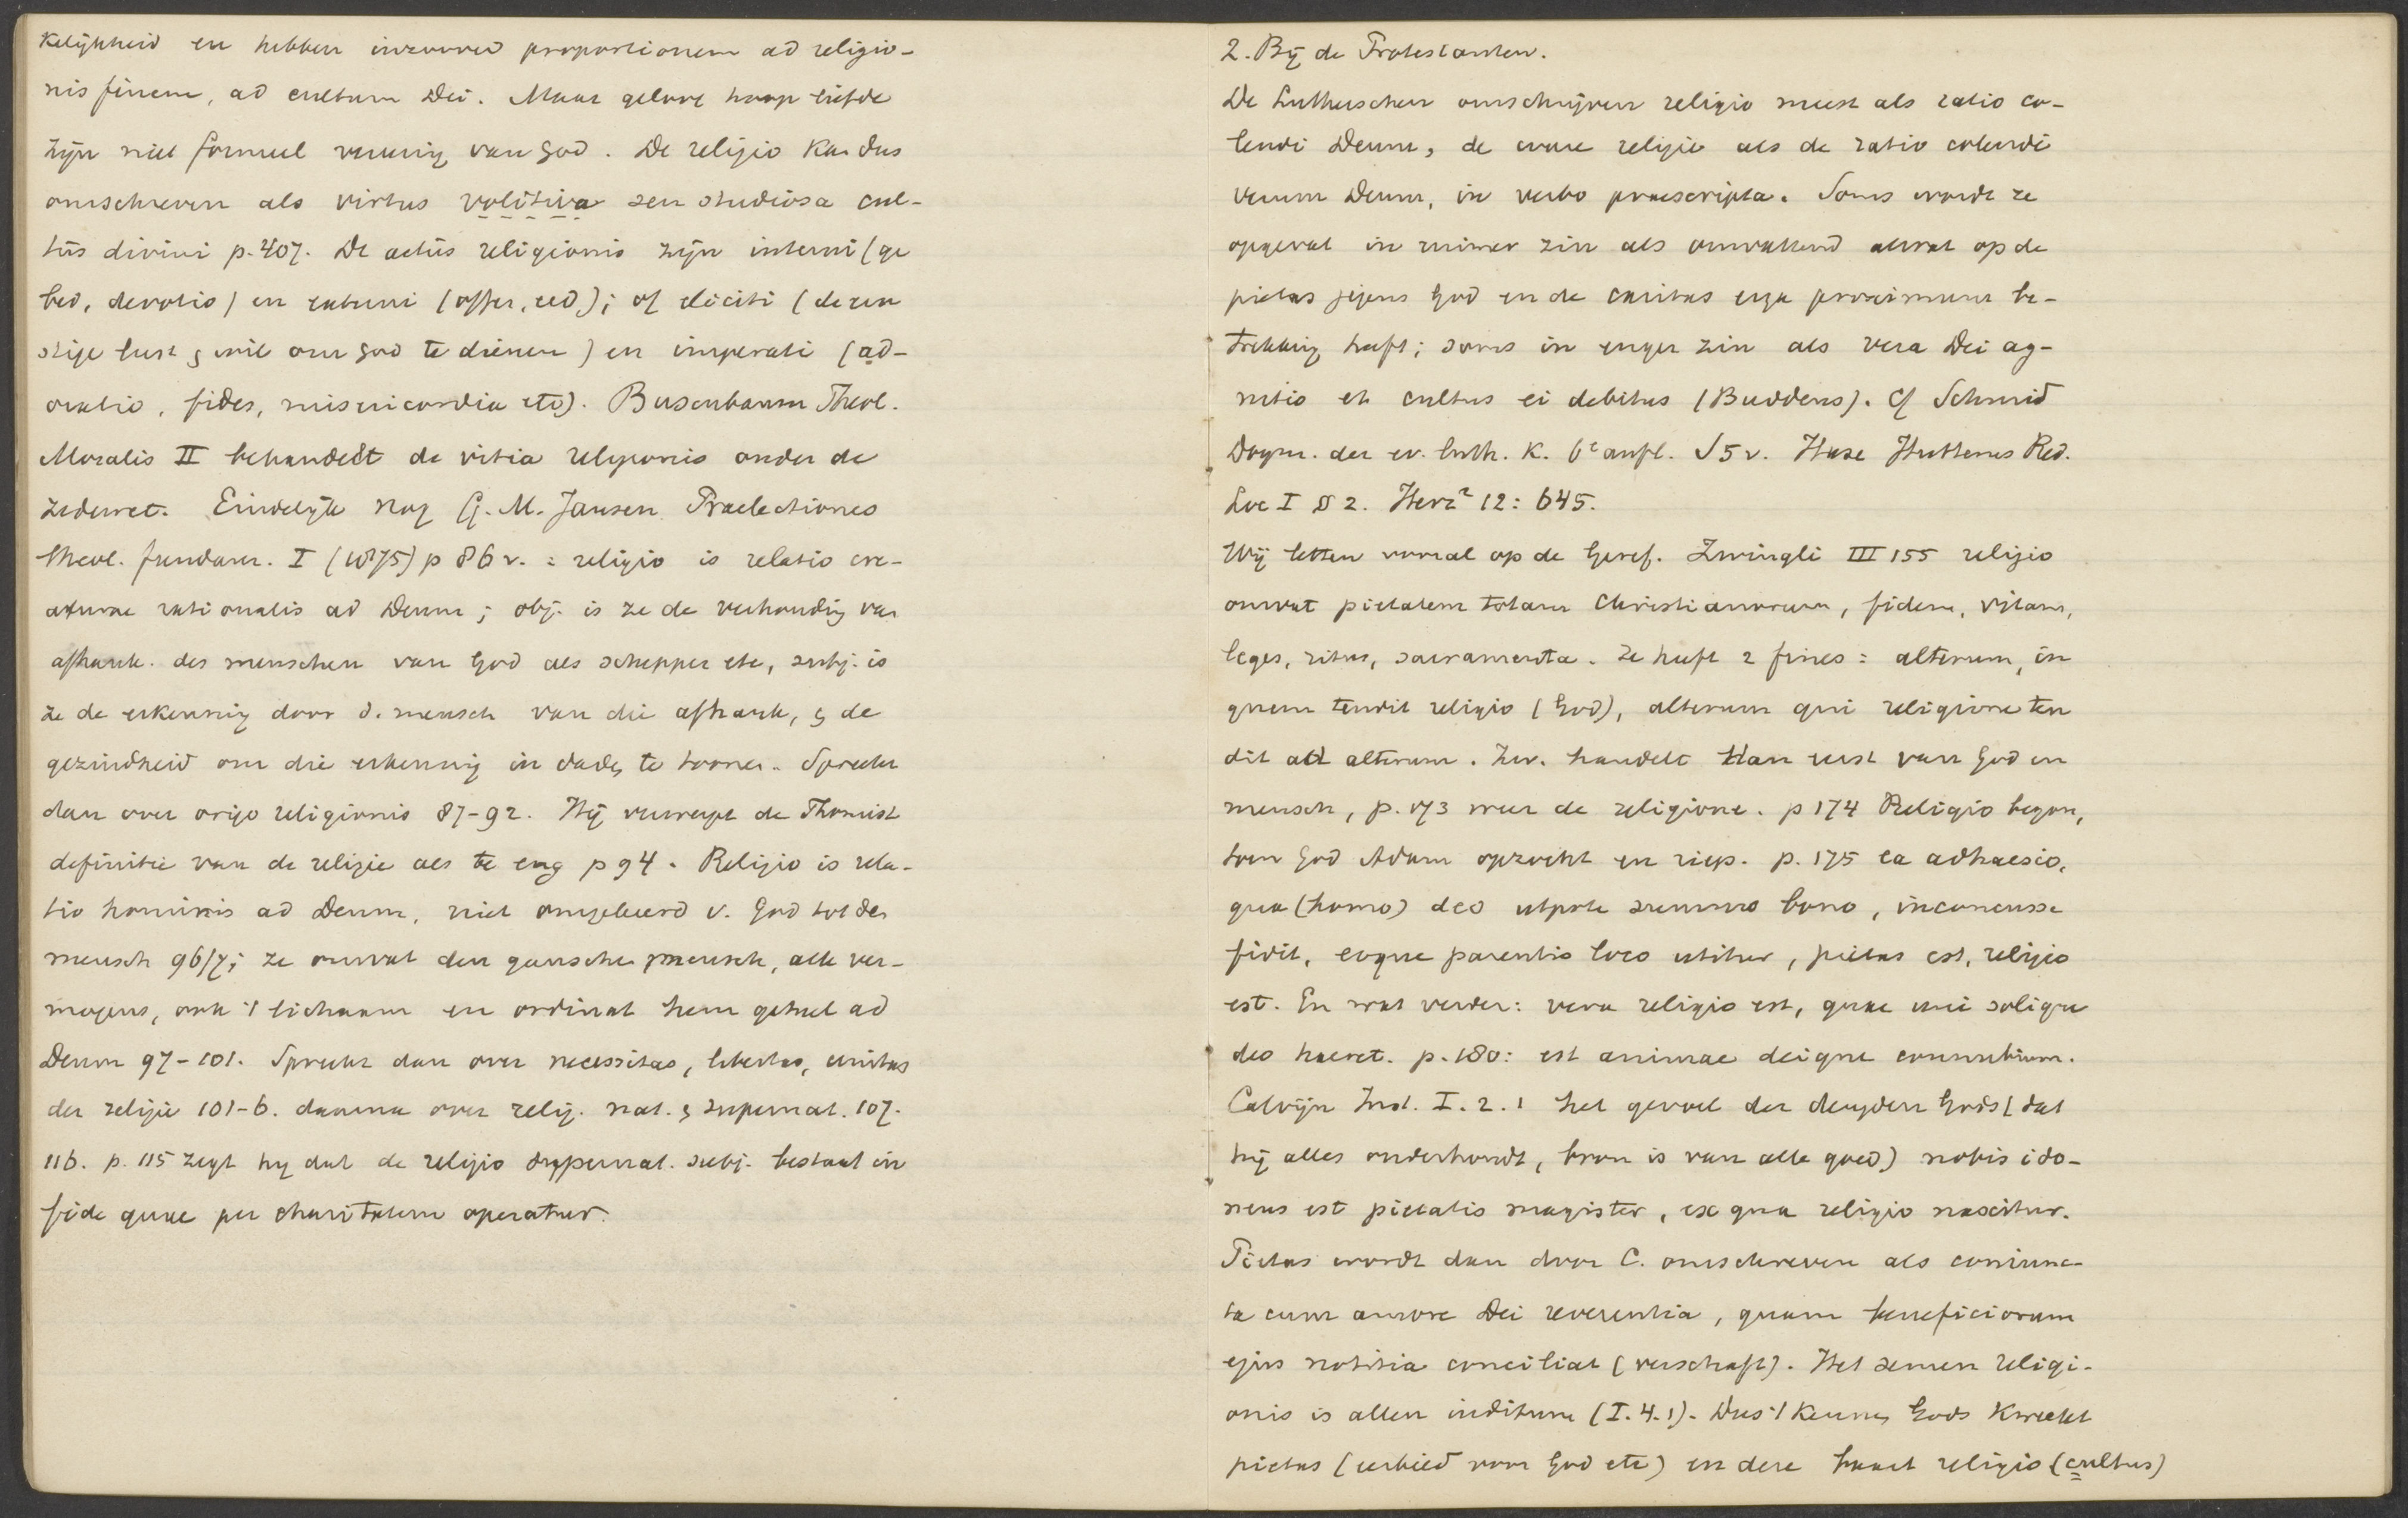 kelijkheid en hebben inzooverd proportionem ad religio-
nis finem, ad cultum Dei. Maar geloof hoop liefde
zijn niet formeel vereerig van God. De religio kan dus
omschreven als virtus volitiva seu studiosa cul-
tûs divini p. 407. De actûs religionis zijn interni (ge
bed, devotio) en externi (offer, eed); of eliciti (de ern
stige lust & wil om God te dienen) en imperati (ad-
oratio, fides, misericordia etc). Busenbaum Theol.
Moralis II behandelt de vitia religionis onder de
zedewet. Eindelijk nog G. M. Jansen Praelectiones
theol. fundam. I (1875) p 86 v. : religio is relatio cre-
aturae rationalis ad Deum ; obj. is ze de verhoudig van
afhank. des menschen van God als schepper etc, subj. is
ze de erkennig door d. mensch van die afhank, & de
gezindheid om die erkennig in dade te toonen. Spreekt
dan over origo religionis 87-92. Hij verwerpt de Thomist
definitie van de religie als te eng p 94. Religio is rela-
tio hominis ad Deum, niet omgekeerd v. God tot den
mensch 96/7; ze omvat den ganschen mensch, alle ver-
mogens, ook 't lichaam en ordinat hem geheel ad
Deum 97-101. Spreekt dan over necessitas, libertas, unitas
der religie 101-6. daarna over relig. nat. & supernat. 107-
116. p. 115 zegt hy dat de religio supernat. subj. bestaat in
fide quae per charitatem operatur.
2. Bij de Protestanten.
De Lutherschen omschrijven religio meest als ratio co-
lendi Deum, de ware religie als de ratio colendi
verum Deum, in verbo praescripta. Soms wordt ze
opgevat in ruimer zin als omvattend alwat op de
pietas jegens God en de caritas erga proximum be-
trekking heeft; soms in enger zin als vera Dei ag-
nitio et cultus ei debitus (Buddeus). Cf Schmid
Dogm. der ev. luth. K. 6e aufl. S 5 v. Hase Hutterus Red.
Loc I § 2. Herz² 12: 645.
Wij letten vooral op de Geref. Zwingli III 155 religio
omvat pietatem totam Christianorum, fidem, vitam,
leges, ritus, sacramenta. Ze heeft 2 fines : alterum, in
quem tendit religio (God), alterum qui religione ten
dit ad alterum. Zw. handelt dan eerst van God en
mensch, p. 173 weer de religione. p 174 Religio begon,
toen God Adam opzocht en riep. p. 175 ea adhaesio,
qua (homo) deo utpote summo bono, inconcusse
fidit, eoque parentis loco utitur, pietas est, religio
est. En wat verder: vera religio est, quae uni solique
deo haeret. p. 180: est animae deique connubium.
Calvijn Inst. I. 2. 1 het gevoel der deugden Gods (dat
hij alles onderhoudt, bron is van alle goed) nobis ido-
neus est pietatis magister, ex qua religio nascitur.
Pietas wordt dan door C. omschreven als coniunc-
ta cum amore Dei reverentia, quam beneficiorum
ejus notitia conciliat (verschaft). Het semen religi-
onis is allen inditum (I. 4. 1). Dus 't kennen Gods kweekt
pietas (eerbied voor God etc) en deze kweekt religio (cultus)